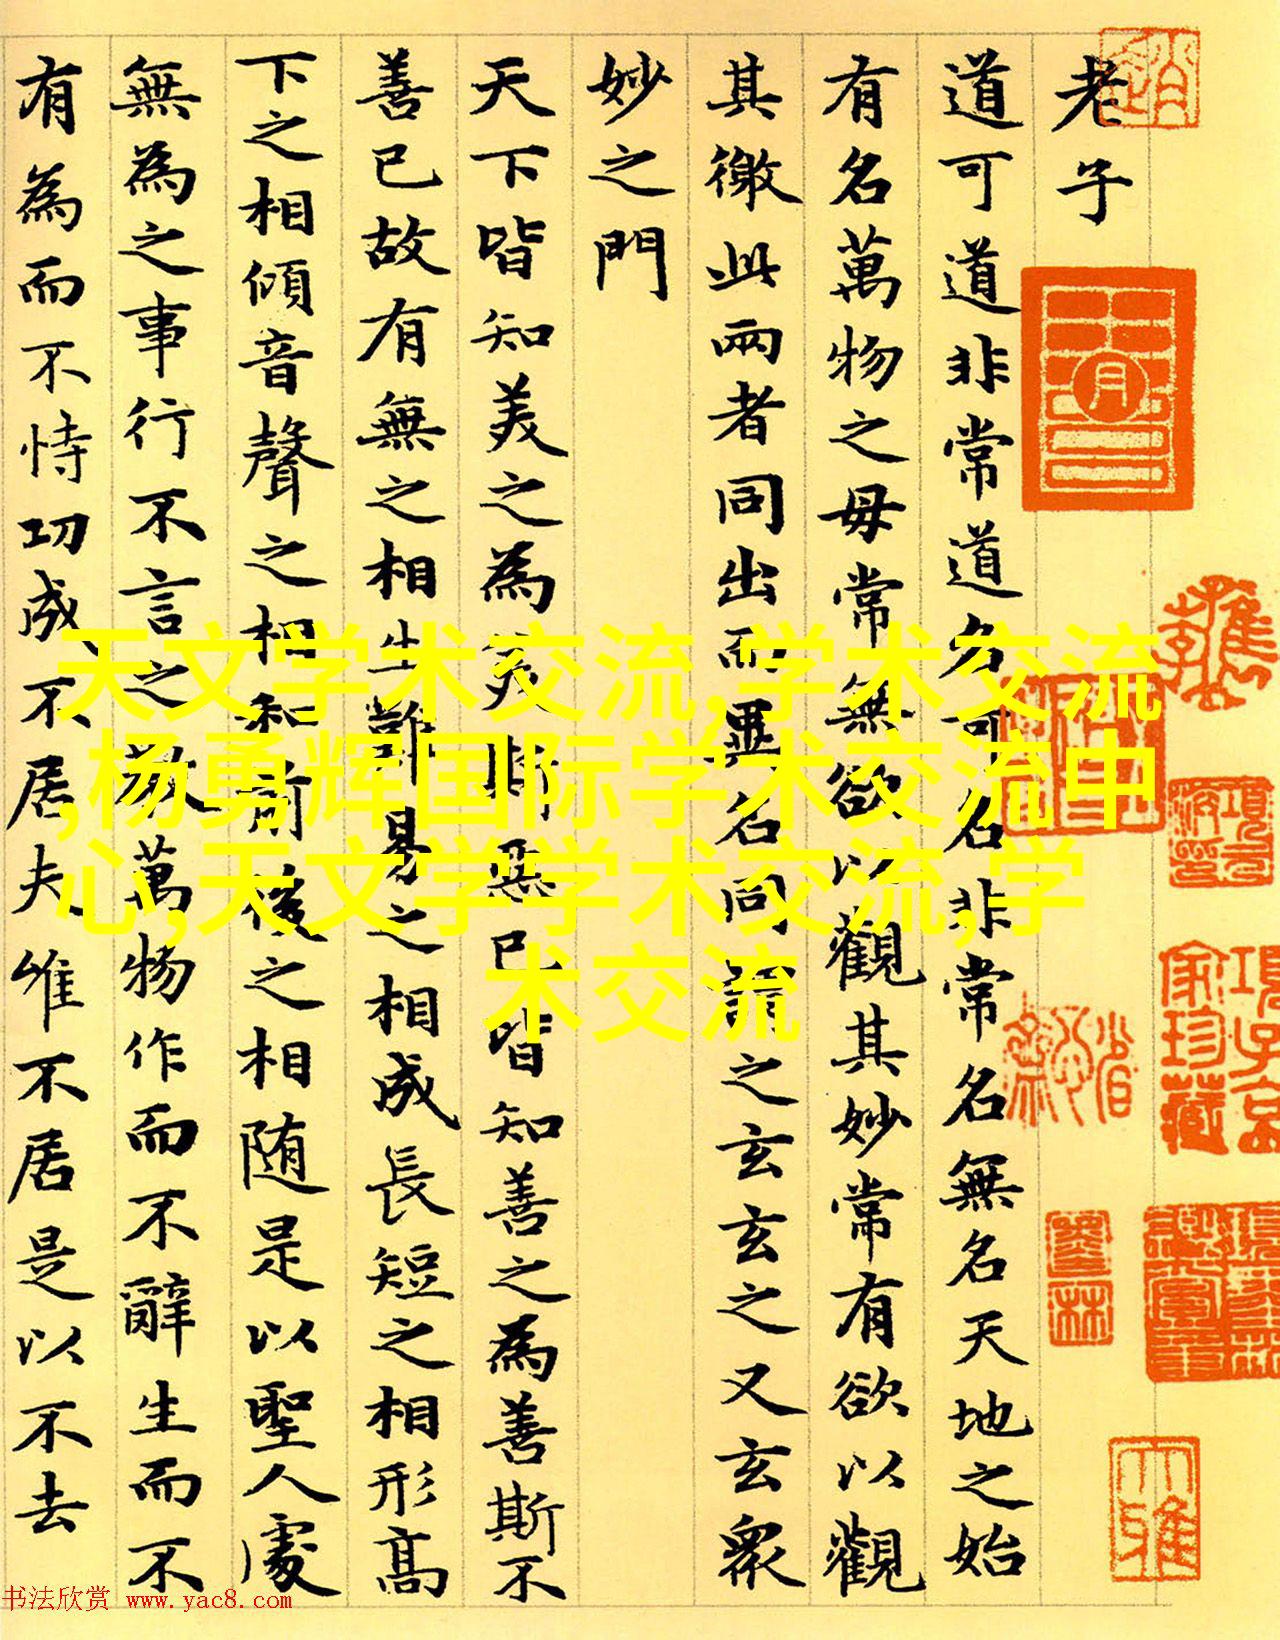 老子
道可道非常道名可名非常名無名天地之始
有名萬物之毋常無欲以觀其妙常有欲以觀
其徼此兩者同出而異名同謂之玄玄之又玄衆
妙之門
天下皆知美之為美斯惡已皆知善之為善斯不
善已故有無之相生難易之相成長短之相形高
下之相傾音聲之相和前後之相随是以聖人處
無為之事行不言之教萬物作而不辭生而不
有為而不恃功成不居夫唯不居是以不去
天文学术交流,学术交流
,杨勇辉国际学术交流中
心,天文学学术交流,学
术交流
項子京
家珍藏
大雅
书法欣赏 www.yac8.com